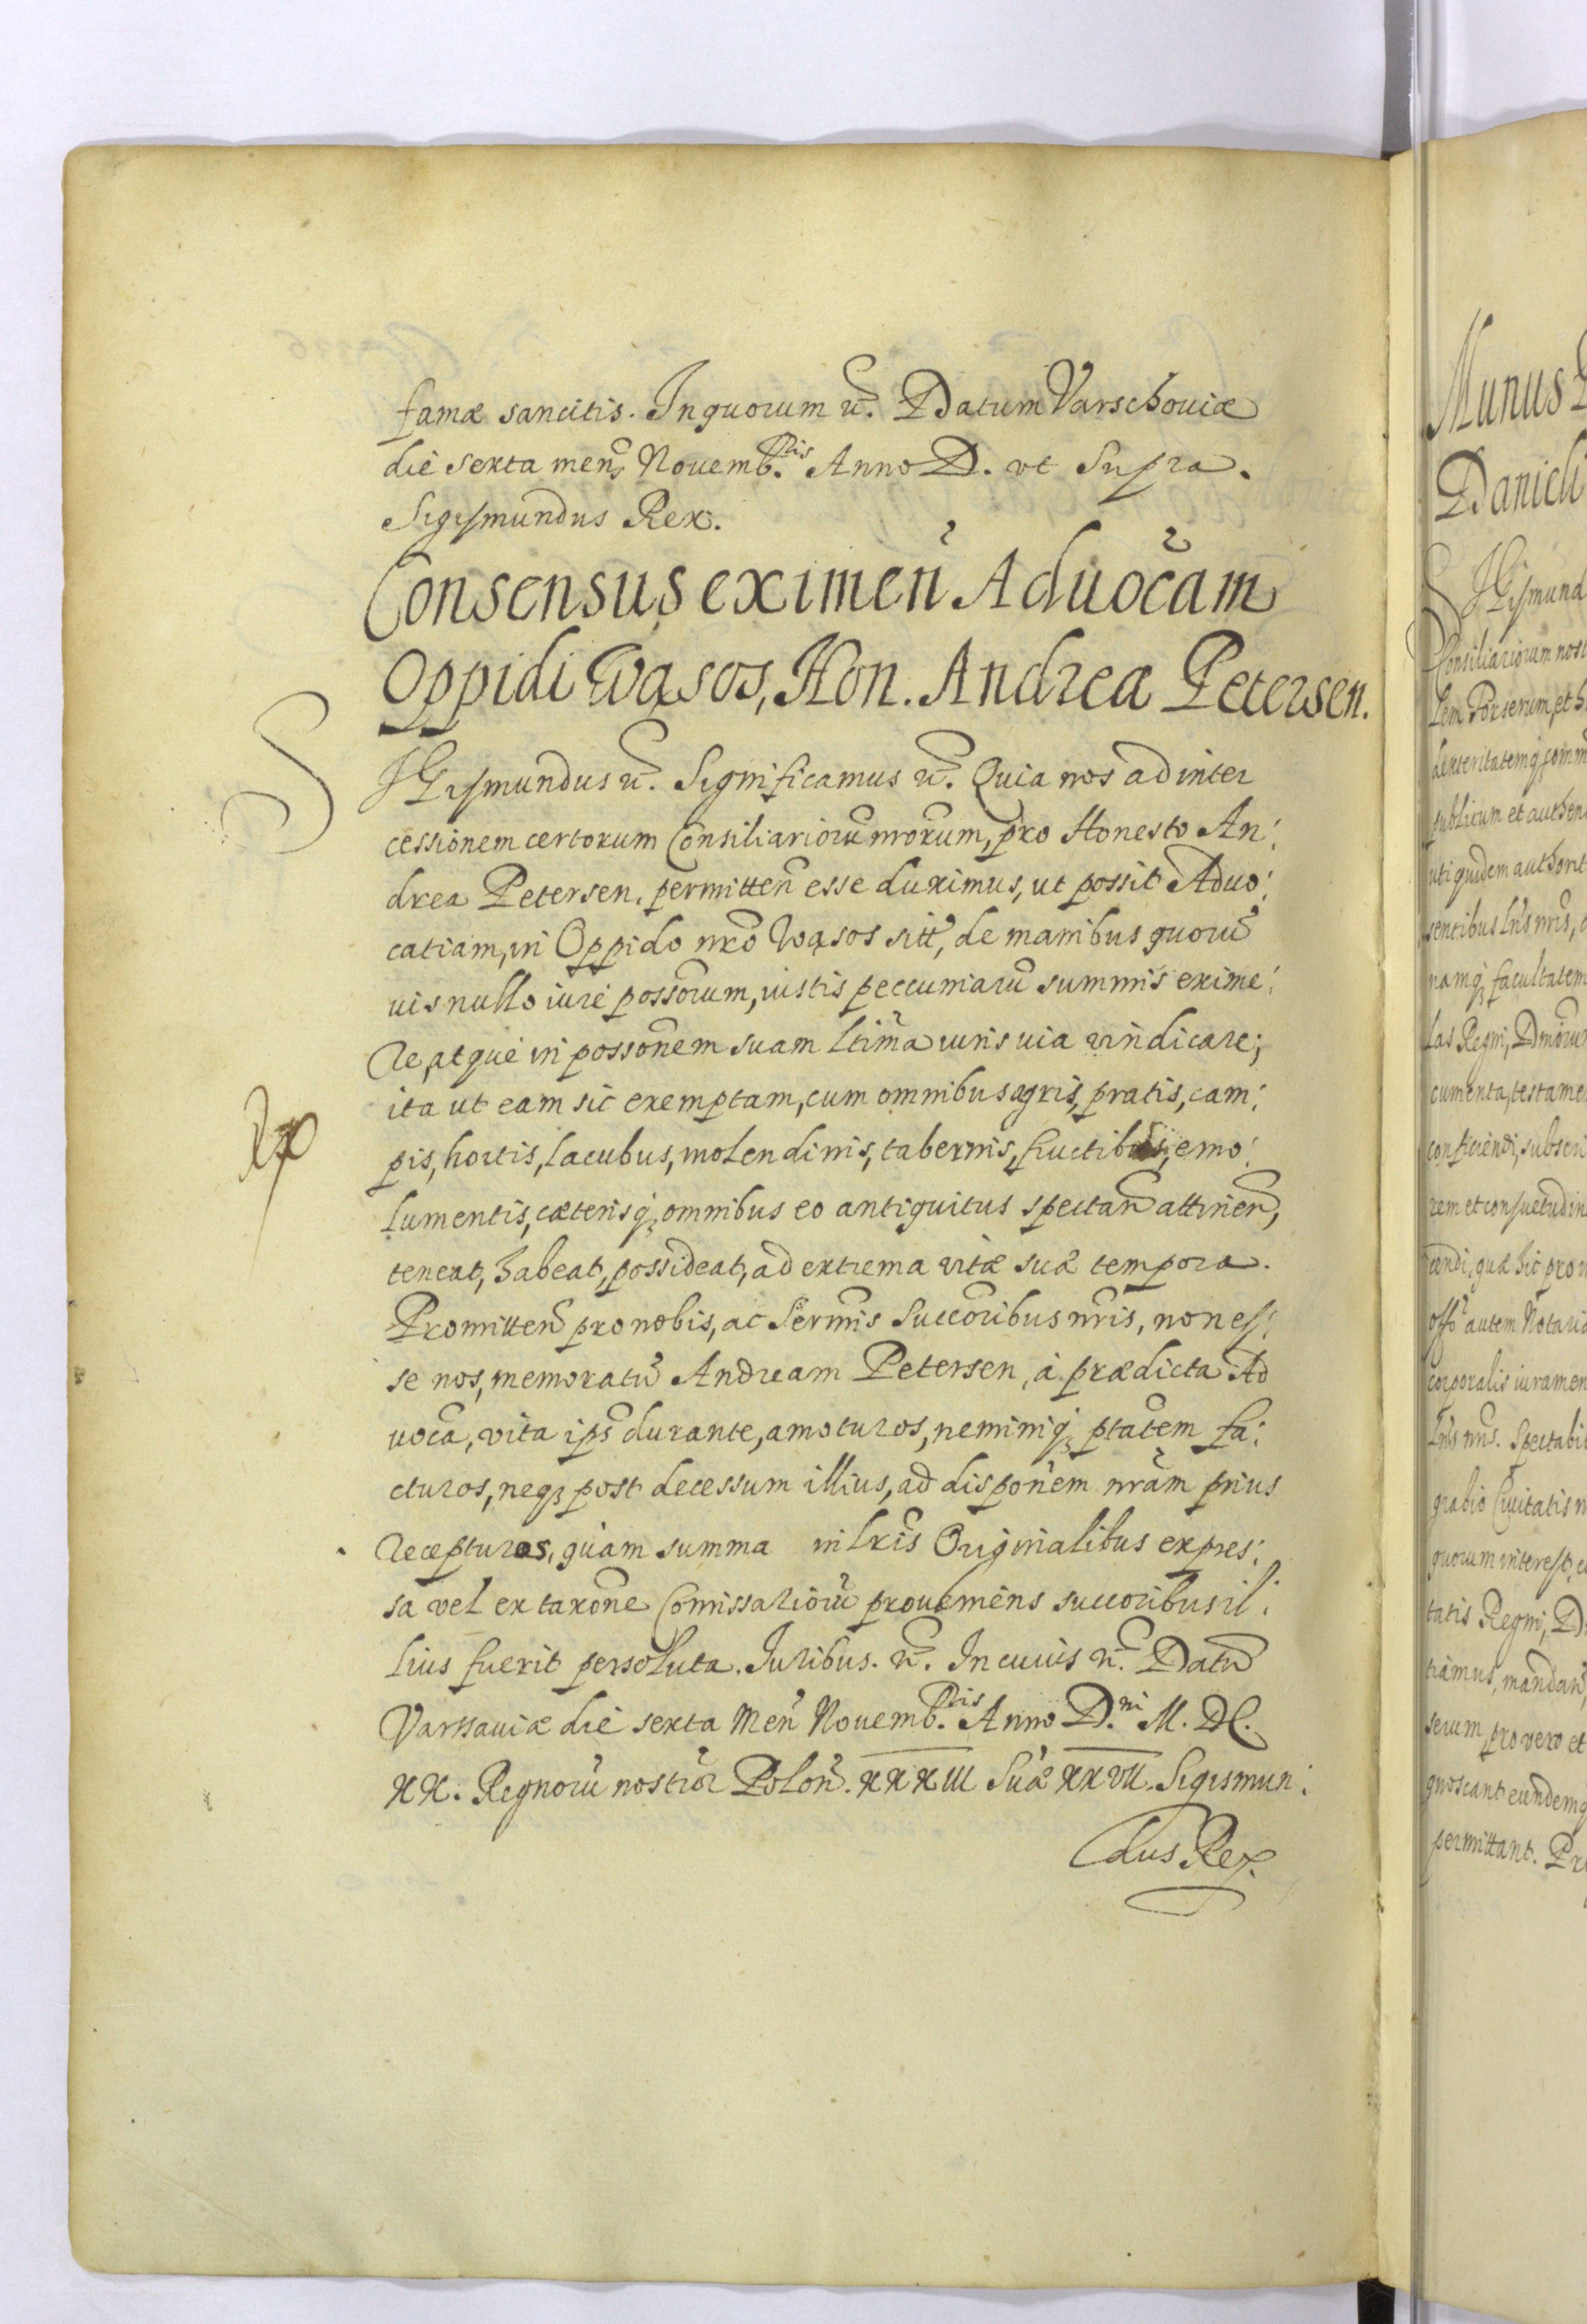 famæ sancitis. In quorum etc. Datum Varschouiæ
die sexta mens Nouemb.ris Anno D. vt Supra.
Sigismundus Rex.
Consensus eximen̄ Aduocãm
Oppidi Wąsos, Hon. Andrea Petersen.
SIgismundus etc. Significamus etc. Quia nos ad inter
cessionem certorum Consiliariorũ nrorum, pro Honesto An:
drea Petersen, permitten̄ esse duximus, ut possit Aduo:
catiam, in Oppido nro Wąsos sitt, de manibus quorũ
uis nullo iure possorum, iustis peccuniarũ summis exime:
re, atque in possonem suam ltima iuris uia vindicare;
ita ut eam sic exemptam, cum omnibus agris, pratis, cam:
pis, hortis, lacubus, molendinis, tabernis, fructibus, emo:
lumentis, cæterisq; omnibus eo antiquitus spectan̄ attinen̄,
teneat, habeat, possideat, ad extrema vitæ suæ tempora.
Promitten̄ pro nobis, ac Sermis Succoribus nris, non es:
se nos, memoratũ Andream Petersen, à prædicta Ad
uoca, vita ips durante, amoturos, neminiq; ptatem fa:
cturos, neq; post decessum illius, ad disponem nram prius
recepturos, quam summa in lris Originalibus expres:
sa vel ex taxone Comissariorũ proueniens succoribus il:
lius fuerit persoluta. Iuribus. etc. In cuius etc. Datũ
Varsauiæ die sexta Men̄ Nouemb.ris Anno D.ni M. DC.
XX. Regnorũ nostror Polon̄. XXXIII Suæ XXVII. Sigismun:
dus Rex.
Munus
Danieli
SIgismund
Consiliariorum nost
lem Porserum, et h
dexteritatemq; comm
publicum et authen
uti quidem authorit
sentibus lris nris,
namq; facultatem
las Regni, Dmorum
cumenta, testame
conficiendi, subscri
rem et consuetudin
endi, quæ sic pro
offo autem Notario
corporalis iuramen
lris nris. Spectabi
gnabio Ciuitatis n
quorum interest, e
tatis Regni, D
tiamus, mandan̄,
serum pro vero et
gnoscant eundemq
permittant. Pr